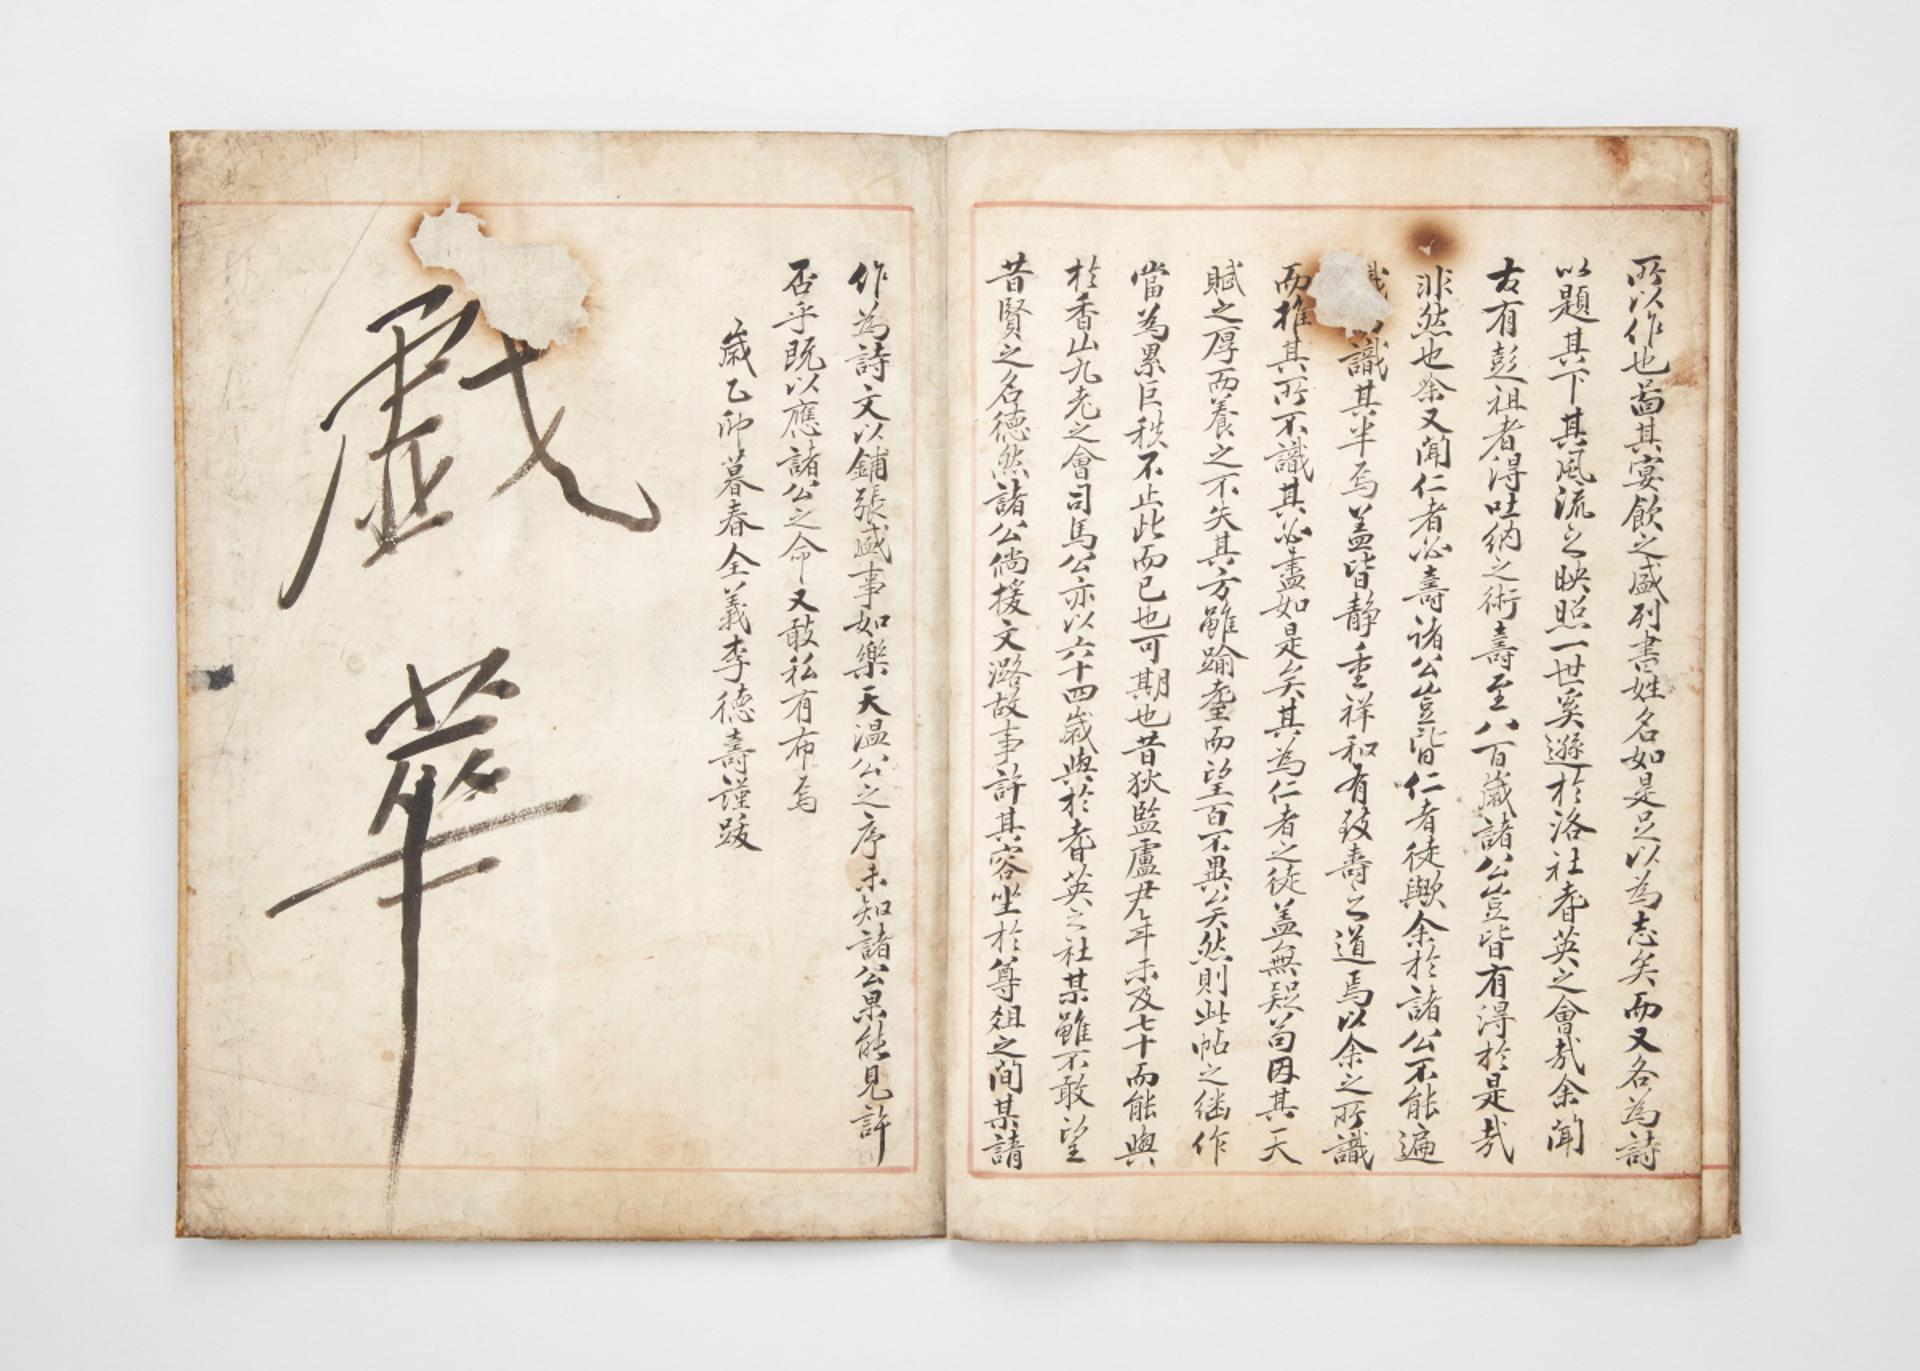 所以作也啚其宴飮之盛列書姓名如是足以為志矣而又各為詩
以題其下其風流之映照一世奚遜於洛社耆英之會㦲余聞
古有彭祖者得吐納之術壽至八百歲諸公豈皆有得於是㦲
非然也余又聞仁者必壽諸公豈皆仁者徒歟余於諸公不能遍
識其半焉盖皆靜重祥和有致壽之道焉以余之所識
而推其所不識其必盡如是矣其為仁者之徒盖無疑苟因其天
賦之厚而養之不失其方雖踰耄而望百不異矣然則此帖之継作
當為累巨秩不止此而已也可期也昔狄監盧尹年未及七十而能與
於香山九老之會司馬公亦以六十四歲與於耆英之社某雖不敢望
昔賢之名德然諸公倘援文潞故事許其容坐於尊俎之間某請
作為詩文以鋪張盛事如樂天温公之序未知諸公果能見許
否乎旣以應諸公之命又敢私有布焉
歲乙卯暮春全義李德壽謹跋
戱
華